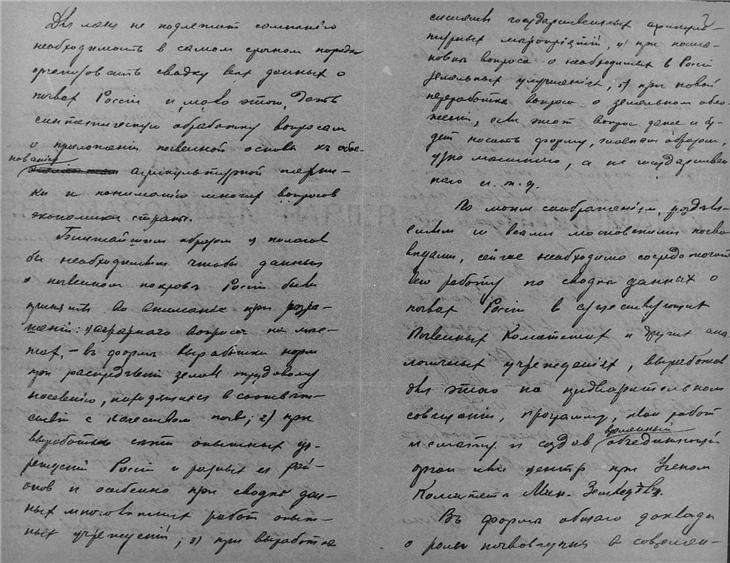 Для меня не подлежит сомнению
необходимость в самом срочном порядке
организовать сводку всех данных о
почвах России и, мало этого, дать
синтетическую обработку вопросам
о приложении почвенной основы къ обос-
нованию агрикультурной техни-
ки и пониманию многих вопросов
экономики страны.
Ближайшим образом я полагал
бы необходимым чтобы данные
о почвенном покрове России были
приняты во внимание при разре-
шении: 1) аграрного вопроса на мес-
тах, – в форме выработки норм
при распределении земель трудовому
населению, находящихся в соответ-
ствии с качеством почв; 2) при
выработке сети опытных уч-
реждений России и разных ея рай-
онов и особенно при сводке дан-
ных многолетних работ опыт-
ных учреждений; 3) при выработке
системы государственных агрикуль-
турных мероприятий, 4) при поста-
новке вопроса о необходимых в России
земельных улучшениях, 5) при новой
переработке вопроса о земельном обло-
жении, если этот вопрос даже и бу-
дет носить форму, главным образом,
узко местного, а не государствен-
наго и. т. д.
По моим соображениям, разделя-
емым и всеми московскими почво-
ведами, сейчас необходимо сосредоточить
всю работу по сводке данных о
почвах России в существующих
Почвенных Комитетах и других ана-
логичных учреждениях, выработав
для этого на предварительном
совещании, программу, план работ
и смету и создав временный объединяющий
орган или центр при Ученом
Комитете Мин. Земледелия.
Въ форме общаго доклада
о роли почвоведения в современ-